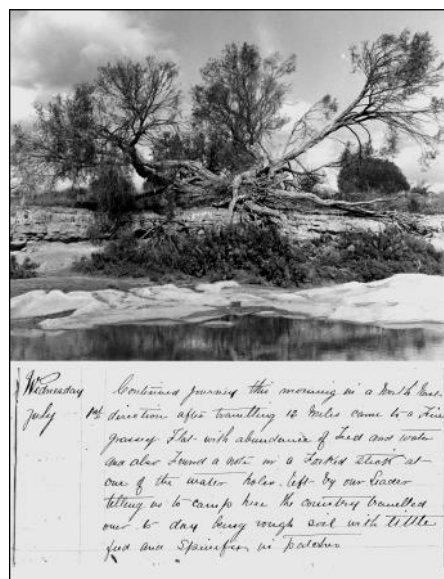 Wednesday Continued journey this morning in a North East
July 1st direction after travelling 12 Miles came to a Fine
grassy Flat with abundance of Feed and water
and also Found a note in a Forked Stick at
one of the water holes left by our Leader
telling us to camp here the country travelled
over to day being rough soil with little
feed and Spinifex in Patches